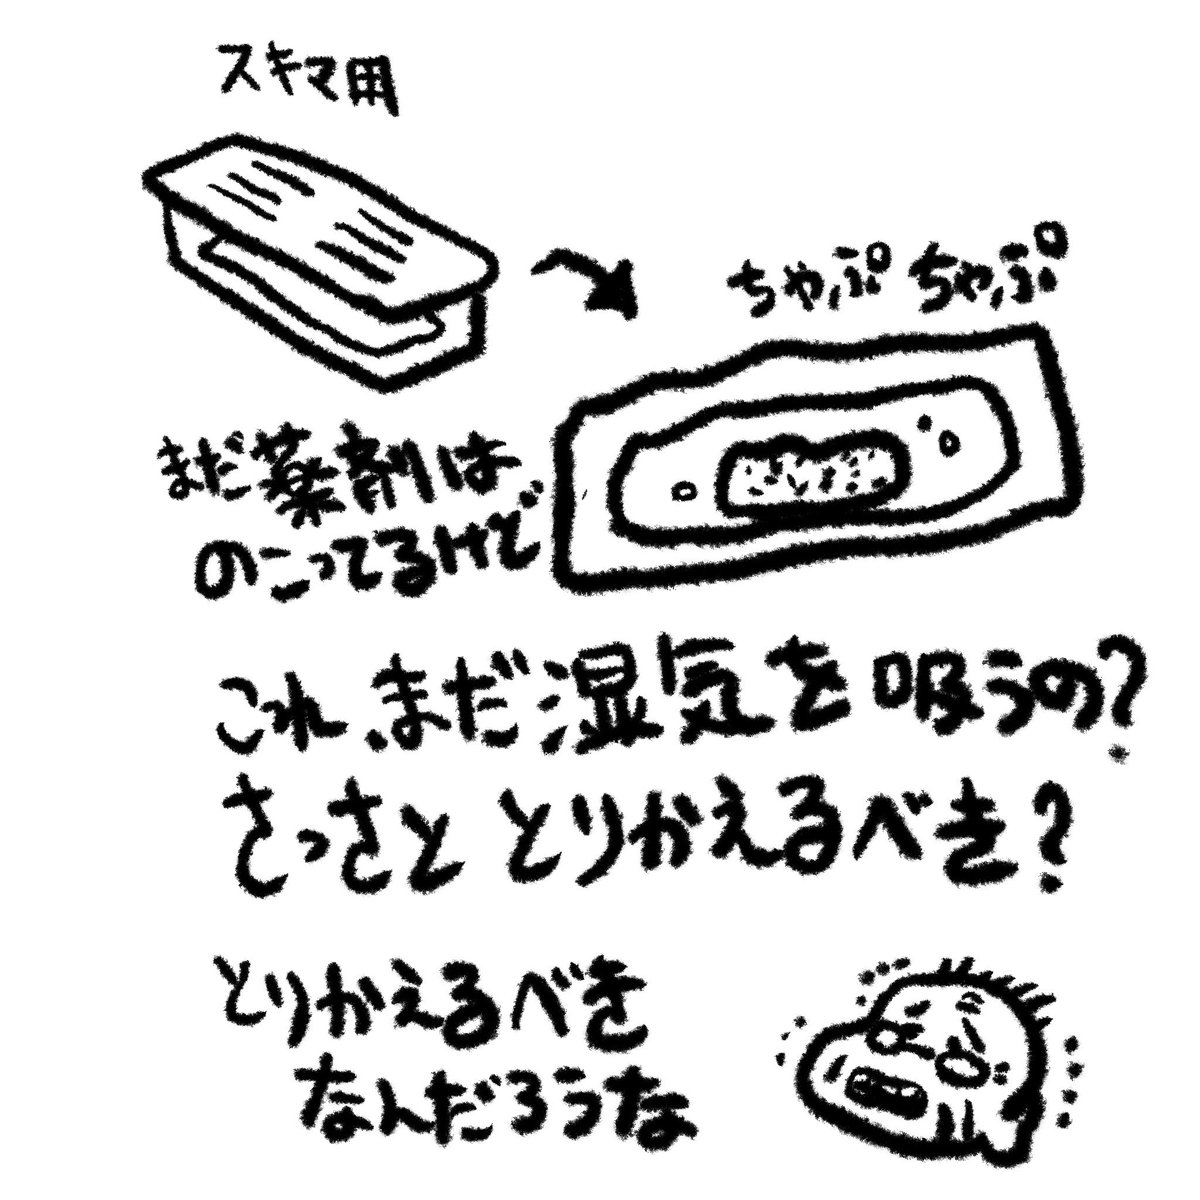 スキマ用
ちゃぷちゃぷ
まだ薬剤は
のこってるけど
これ、まだ湿気を吸うの?
さっさと とりかえるべき?
とりかえるべき
なんだろうな